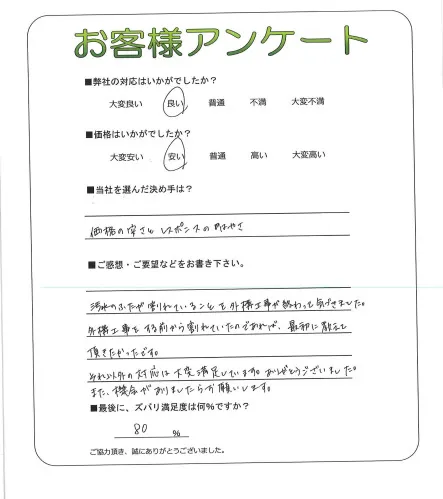 お客様アンケート
■弊社の対応はいかがでしたか？
大変良い 良い 普通 不満 大変不満
■価格はいかがでしたか？
大変安い 安い 普通 高い 大変高い
■当社を選んだ決め手は？
価格の安さと レスポンスのはやさ
■ご感想・ご要望などをお書き下さい。
汚水のふたが割れていることを外構工事が終わって気づきました。
外構工事をする前から割れていたのであれば、最初に教えて
頂きたかったです。
それ以外の対応は大変満足しています。ありがとうございました。
また、機会がありましたらお願いします。
■最後に、ズバリ満足度は何%ですか？
80 %
ご協力頂き、誠にありがとうございました。